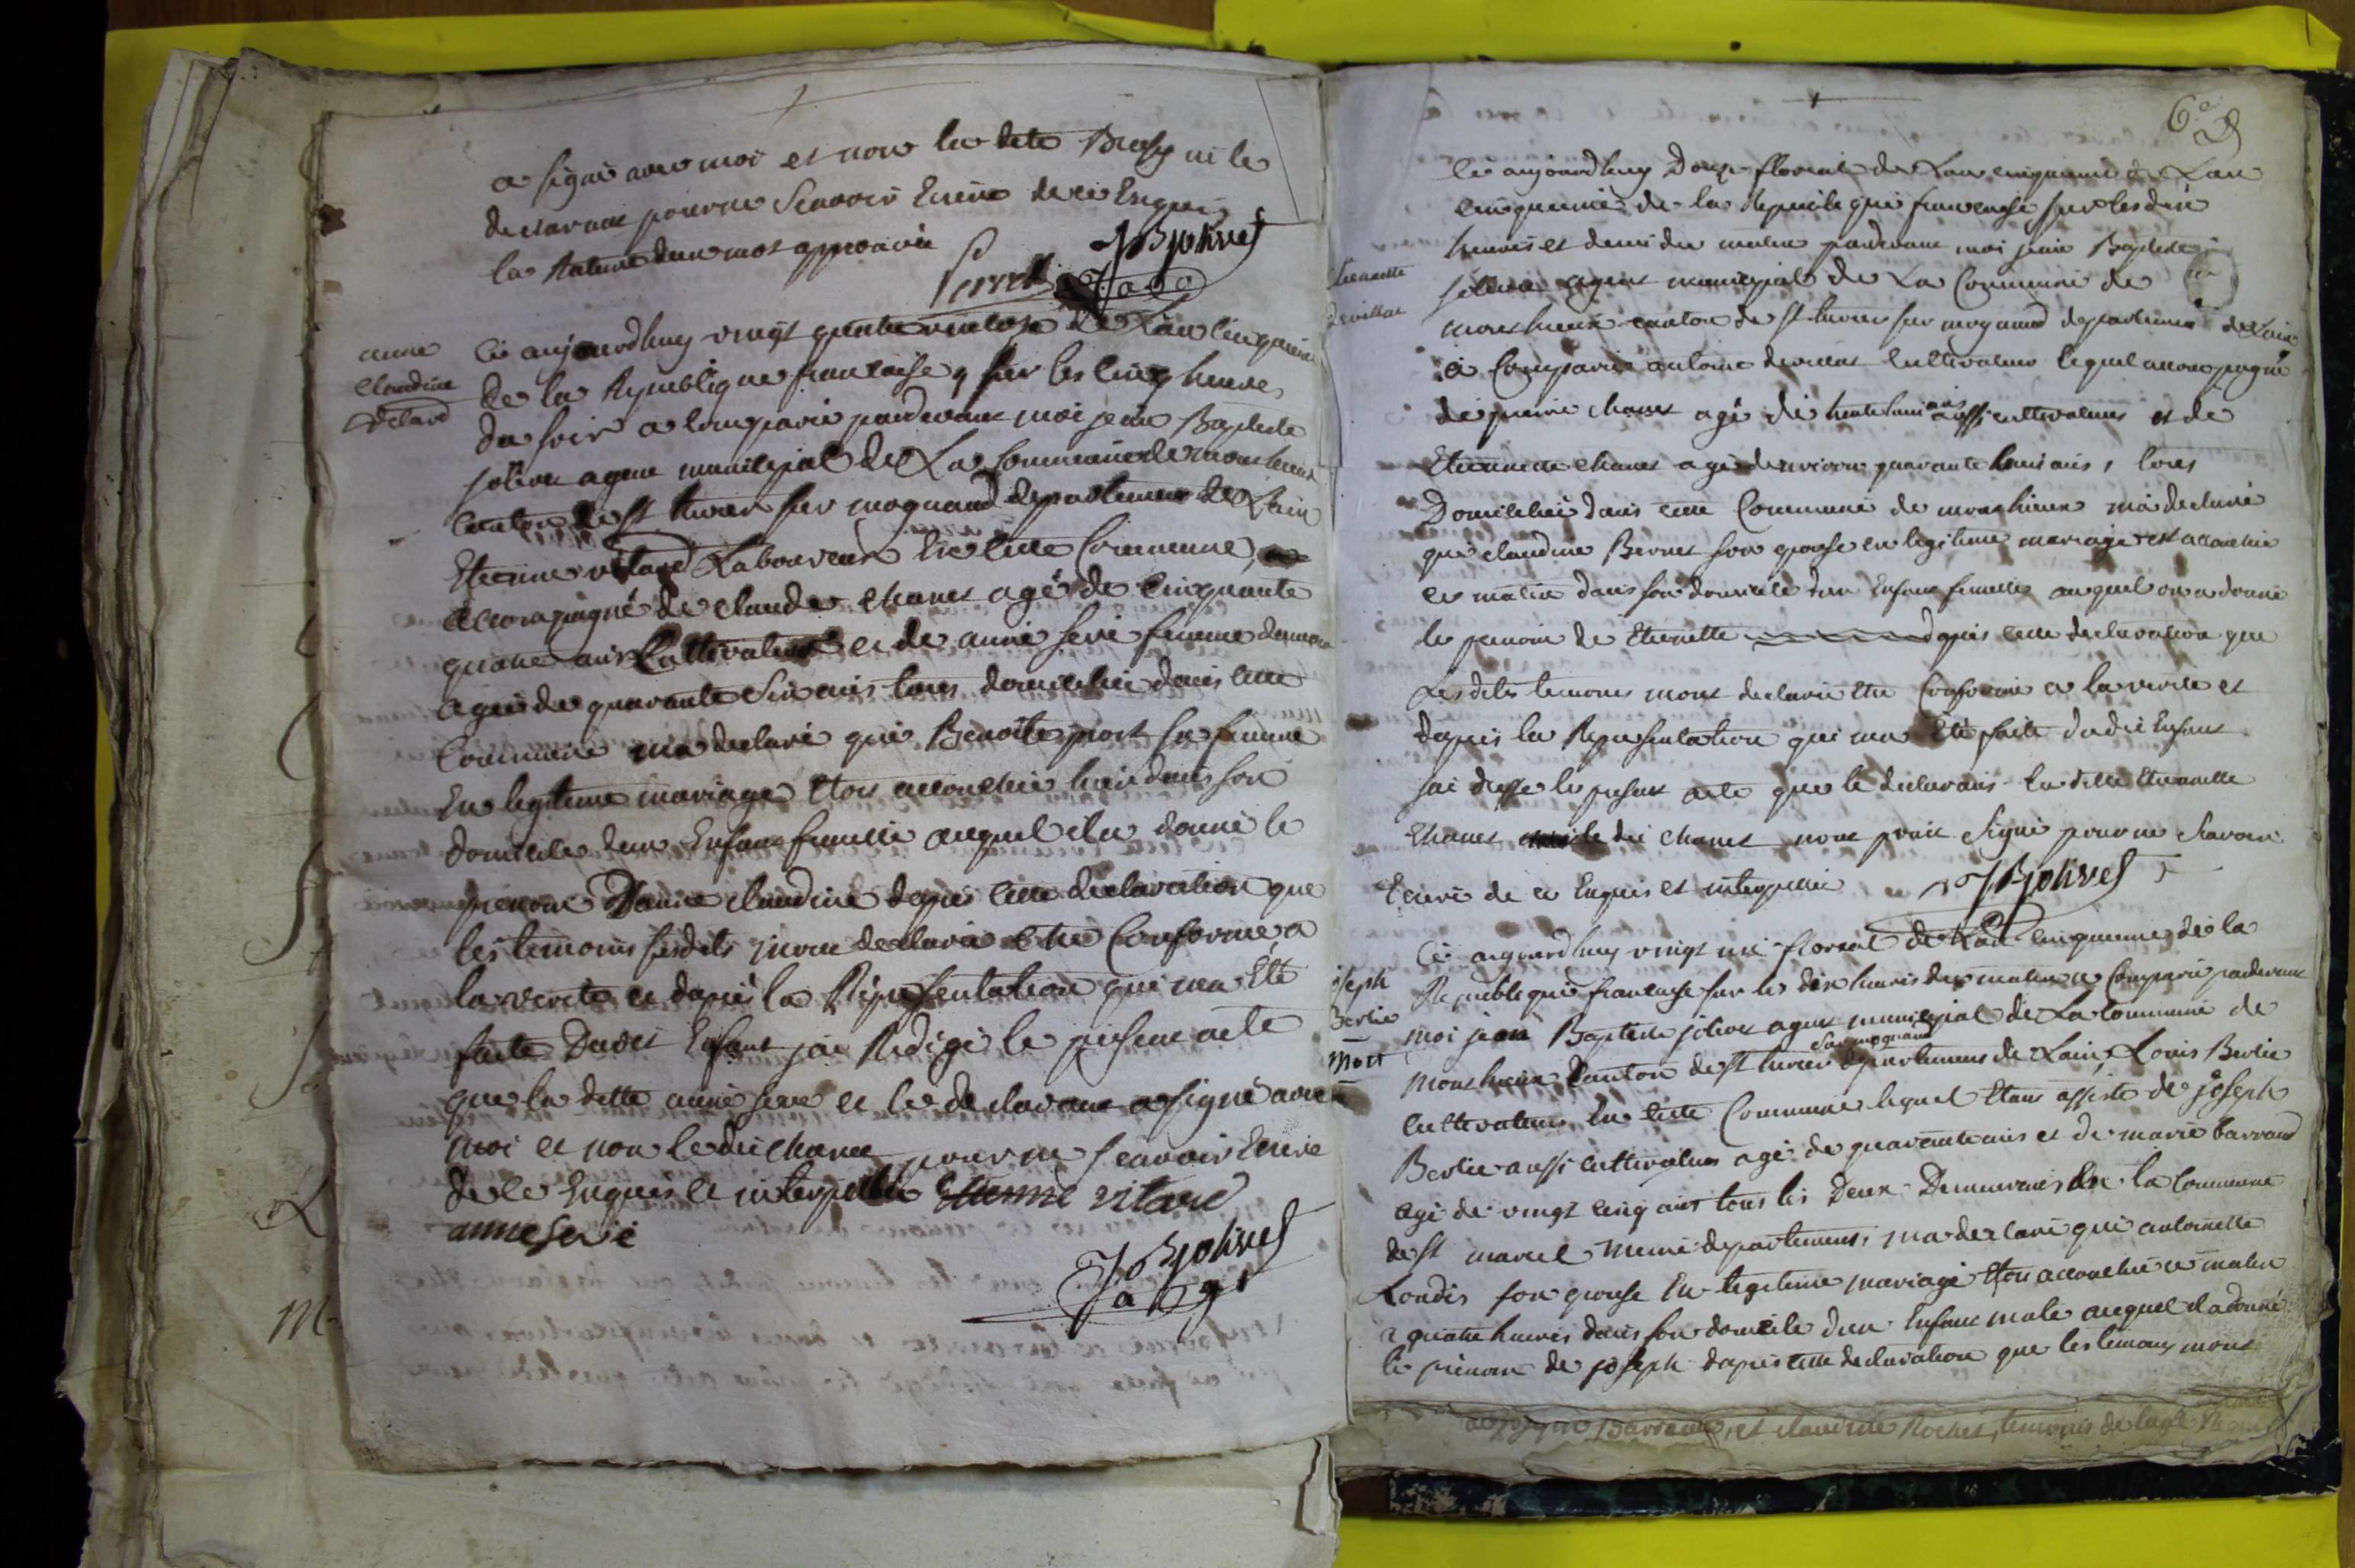 a signé avec moi et non la dite Bressy ni le
declarant pour ne Scavoir Ecrire de ce Enquis
la Rature dun mot approuvée
Perret JBjolivet
ag
anne
Claudine
vitard
Ce aujourdhuy vingt quatre ventose de Lan cinquieme
De la Republique francaise, sur les cinq heures
du soir a comparu pardevant moi jean Baptiste
jolivet agent municipal de La Commune de monthieux
canton de st trivier sur mognand departement de Lain
Etienne vitard Laboureur En cette Commune,
accompagné de claude chanet agé de cinquante
quatre ans Cultivateur et de anne serie femme
agée de quarante Six ans tous domiciliés dans cette
Commune ma declaré que Benoite piost sa femme
En legitime mariage Etoit accouchée hier dans son
domicile dun Enfant femelle auquel il a donné le
prenom Danne claudine dapres cette declaration que
les temoins susdits mont declaré etre Conforme a
la verité et dapres la Representation qui ma Eté
faite Dudit Enfant jai Redigé le present acte
que la ditte anne serie et le declarant a signé avec
moi et non le dit chanet pour ne scavoir Ecrire
de ce Enquis et interpellé Etienne vitard
anne serie
JBjolivet
ag
M
6e
Etiennette
Devillat
Ce aujourdhuy Douze floreal de Lan cinquieme de Lan
cinquieme de la Republique francaise sur les dix
heures et demi du matin pardevant moi jean Baptiste
jolivet agent municipal de La Commune de
monthieux canton de st trivier sur mognand departement de Lain
a Comparu antoine cultivateur lequel accompagné
de pierre chanet agé de trente huit ans aussi cultivateur et de
Etiennette chanet agée denviron quarante huit ans, tous
Domiciliés dans cette Commune de monthieux ma declaré
que claudine Bernet son epouse en legitime mariage est accouchée
ce matin dans son domicile dun Enfant femelle auquel on a donné
le prenom de Etiennette dapres cette declaration que
Lesdits temoins mont declaré etre Conforme a la verité et
dapres la Representation qui ma Eté faite dudit Enfant
jai dressé le present acte que le declarant la ditte Etiennette
Chanet le dit chanet nont point Signé pour ne Scavoir
Ecrire de ce Enquis et interpellé JBjolivet
joseph
Berlie
mort
Ce aujourdhuy vingt un floreal de Lan cinquieme de la
Republique francaise sur les dix heures du matin a Comparu pardevant
moi jean Baptiste jolivet agent municipal de La Commune de
sur mognand
monthieux Canton de st trivier departement de Lain, Louis Berlie
cultivateur En cette Commune lequel Etant assisté de joseph
Berlie aussi cultivateur agé de quarante ans et de marie barraud
agé de vingt cinq ans tous les Deux Demeurants la Commune
de st marcel meme departement, ma declaré que antoinette
Londis son epouse En legitime mariage Etoit accouchée ce matin
a quatre heures dans son domicile dun Enfant male auquel il a donné
le prenom de joseph dapres cette declaration que les temoins mont
Barraud, et claudine Rochet, temoins de